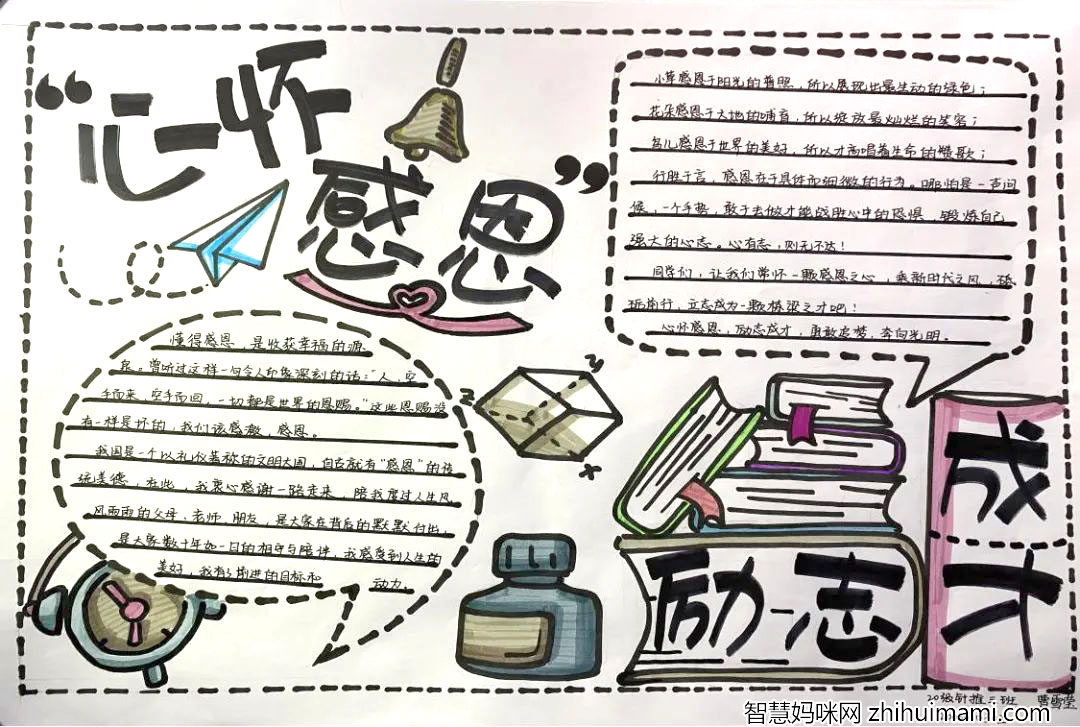 “心怀
感恩”
小草感恩于阳光的普照，所以展现出最生动的绿色；
花朵感恩于大地的哺育，所以绽放最灿烂的笑容；
鸟儿感恩于世界的美好，所以才高唱着生命的赞歌；
行胜于言，感恩在于具体而细微的行为。哪怕是一声问
候，一个手势，敢于去做才能战胜心中的恐惧，锻炼自己
强大的心志。心有志，则无不达！
同学们，让我们常怀一颗感恩之心，乘新时代之风，砥
砺前行，立志成为一颗栋梁之才吧！
心怀感恩，励志成才，勇敢追梦，奔向光明。
懂得感恩，是收获幸福的源
泉。曾听过这样一句令人印象深刻的话："人，空
手而来，空手而回，一切都是世界的恩赐。"这些恩赐没
有一样是坏的，我们该感激，感恩。
我国是一个以礼仪著称的文明大国，自古就有"感恩"的传
统美德，在此，我衷心感谢一路走来，陪我度过人生风
风雨雨的父母、老师、朋友，是大家在背后的默默付出，
是大家数十年如一日的相守与陪伴，我感受到人生的
美好，我有了前进的目标和 动力。
z
y
x
励志
成
才
20级针推三班 曹雪莹
智慧妈咪网 zhihuimami.com